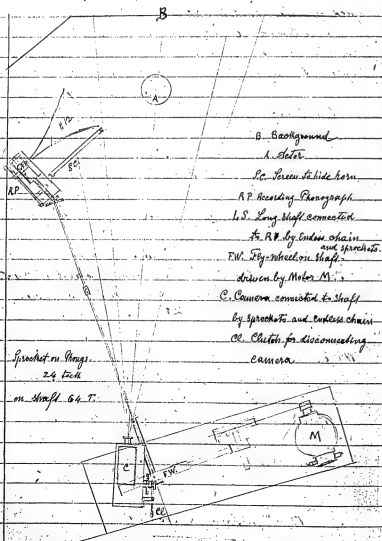 B
A
H 12
Sc.
R.P.
B. Background
A. Actor
Sc. Screen to hide horn
R.P. Recording Phonograph
L.S. Long Shaft connected
to R.P. by Endless chain
and sprockets.
F.W. Fly-wheel on Shaft-
driven by Motor M.
C. Camera connected to Shaft
by sprockets and endless chain
Cl. Clutch for disconnecting
camera
Sprocket on Phono.
24 teeth
on shaft 64 T.
C
F.W.
M
Cl